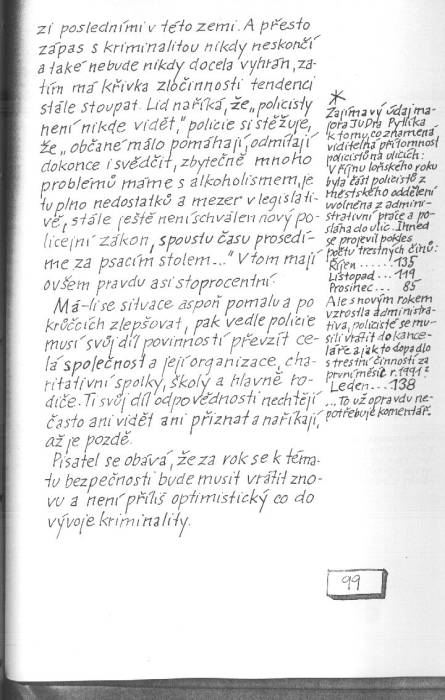 zi posledními v této zemi. A přesto
zápas s kriminalitou nikdy neskončí
a také nebude nikdy docela vyhrán, za-
tím má křivka zločinnosti tendenci
stále stoupat. Lid naříká, že „policisty
není nikde vidět," policie si stěžuje,
že „občané málo pomáhají, odmítají
dokonce i svědčit, zbytečně mnoho
problémů máme s alkoholismem, je
tu plno nedostatků a mezer v legislati-
vě, stále ještě není schválen nový po-
licejní zákon, spoustu času prosedí-
me za psacím stolem..." V tom mají
ovšem pravdu asi stoprocentní.
Má-li se situace aspoň pomalu a po
krůčcích zlepšovat, pak vedle policie
musí svůj díl povinností převzít ce-
lá společnost a její organizace, cha-
ritativní spolky, školy a hlavně ro-
diče. Ti svůj díl odpovědnosti nechtějí
často ani vidět ani přiznat a naříkají,
až je pozdě.
Pisatel se obává, že za rok se k téma-
tu bezpečnosti bude musit vrátit zno-
vu a není příliš optimistický co do
vývoje kriminality.
*
Zajímavý údaj ma-
jora JUDra Pyllika
k tomu, co znamená
viditelná přítomnost
policistů na ulicích:
V říjnu loňského roku
byla část policistů z
městského oddělení
uvolněna z admini-
strativní práce a po-
slána do ulic. Ihned
se projevil pokles
počtu trestných činů:
Říjen ...... 135
Listopad ... 119
Prosinec ... 85
Ale s novým rokem
vzrostla administra-
tiva, policisté se mu-
sili vrátit do kance-
láře a jak to dopadlo
s trestnou činností za
první měsíc r. 1991?
Leden ... 138
...To už opravdu ne-
potřebuje komentář.
99